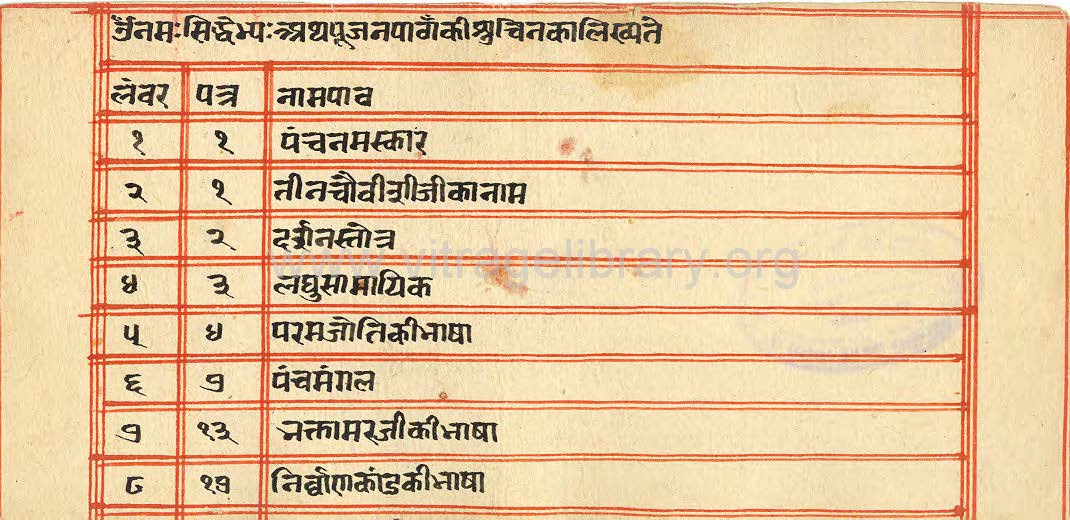 ॐनमःसिद्धेभ्यःअथपूजनपाठँकीश्रुचिनकालिख्यते
लंवर पत्र नामपाव
१ १ पंचनमस्कार
२ १ तीनचौवीशीजीकानाम
३ २ दर्शनस्तोत्र
४ ३ लघुसामायिक
५ ४ परमजोतिकीभाषा
६ ७ पंचमंगल
७ १३ भक्तामरजीकीभाषा
८ १७ निर्व्वाणकांडकीभाषा
www.vitragelibrary.org